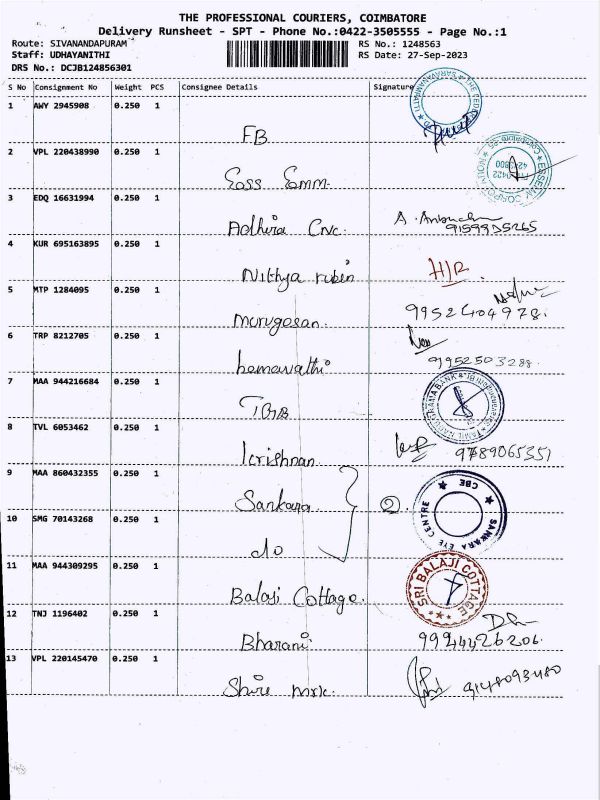 THE PROFESSIONAL COURIERS, COIMBATORE
Delivery Runsheet - SPT - Phone No.:0422-3505555 - Page No.:1
Route: SIVANANDAPURAM RS No.: 1248563
Staff: UDHAYANITHI RS Date: 27-Sep-2023
DRS No.: DCJB124856301
S No Consignment No Weight PCS Consignee Details Signature
1 AWY 2945908 0.250 1
FB
2 VPL 220438990 0.250 1
Eoss Emm.
3 EDQ 16631994 0.250 1
Adhira Cnc.
4 KUR 695163895 0.250 1
Nithya rubin H/R.
5 MTP 1284095 0.250 1
murugesan. 9952404978.
6 TRP 8212705 0.250 1
hemavathi 9952503288.
7 MAA 944216684 0.250 1
TGB TAMIL NADU GRAMA BANK
8 TVL 6053462 0.250 1
krishnan 9789065351
9 MAA 860432355 0.250 1
Sankara 2. SANKARA EYE CENTRE CBE
10 SMG 70143268 0.250 1
do
11 MAA 944309295 0.250 1
Balaji Cottage SRI BALAJI COTTAGE
12 TNJ 1196402 0.250 1
Bharani 9994426206.
13 VPL 220145470 0.250 1